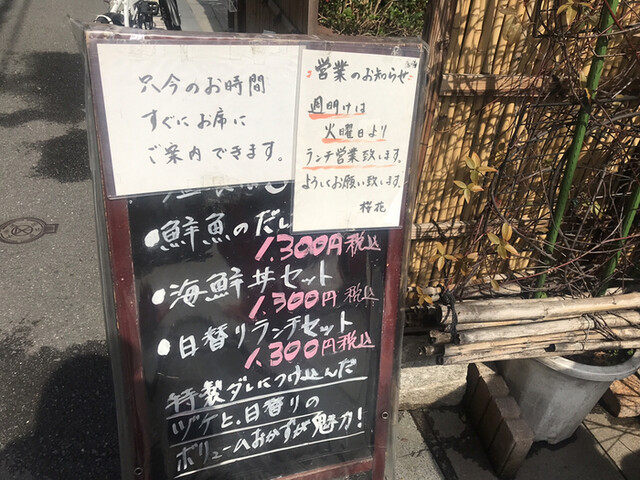 只今のお時間
すぐにお席に
ご案内できます。
営業のお知らせ
週明けは
火曜日より
ランチ営業致します。
よろしくお願い致します。
桜花
・鮮魚のだし
1.300円税込
・海鮮丼セット
1.300円税込
・日替りランチセット
1.300円税込
特製ダレにつけ込んだ
ヅケと、日替りの
ボリュームおかずが魅力！